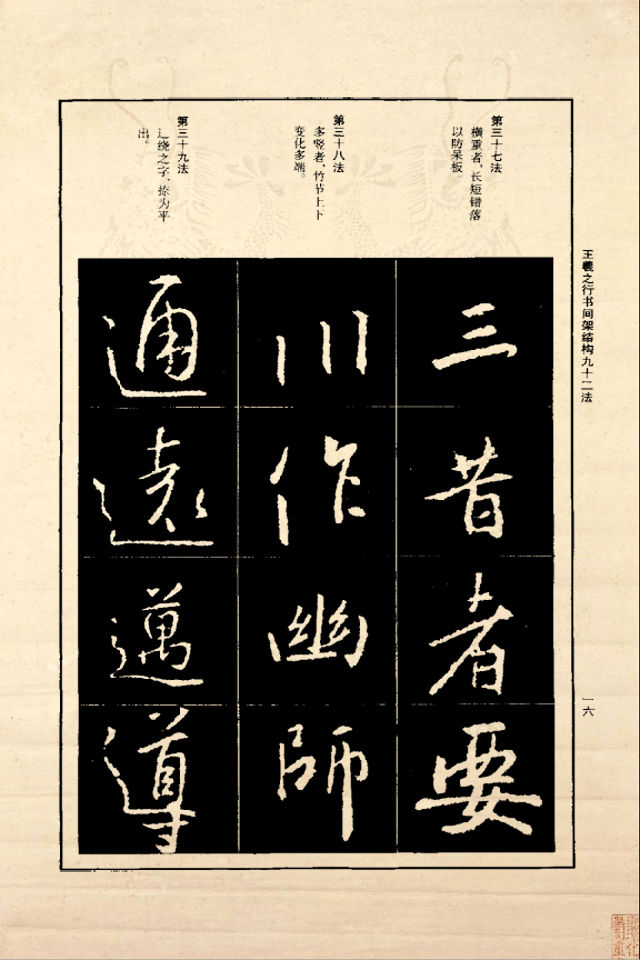 王羲之行书间架结构九十二法
第三十七法
横重者，长短错落
以防呆板
三
昔
者
要
第三十八法
多竖者，竹节上下
变化多端。
川
作
幽
師
第三十九法
辶绕之字，捺为平
出。
通
遠
邁
導
一六